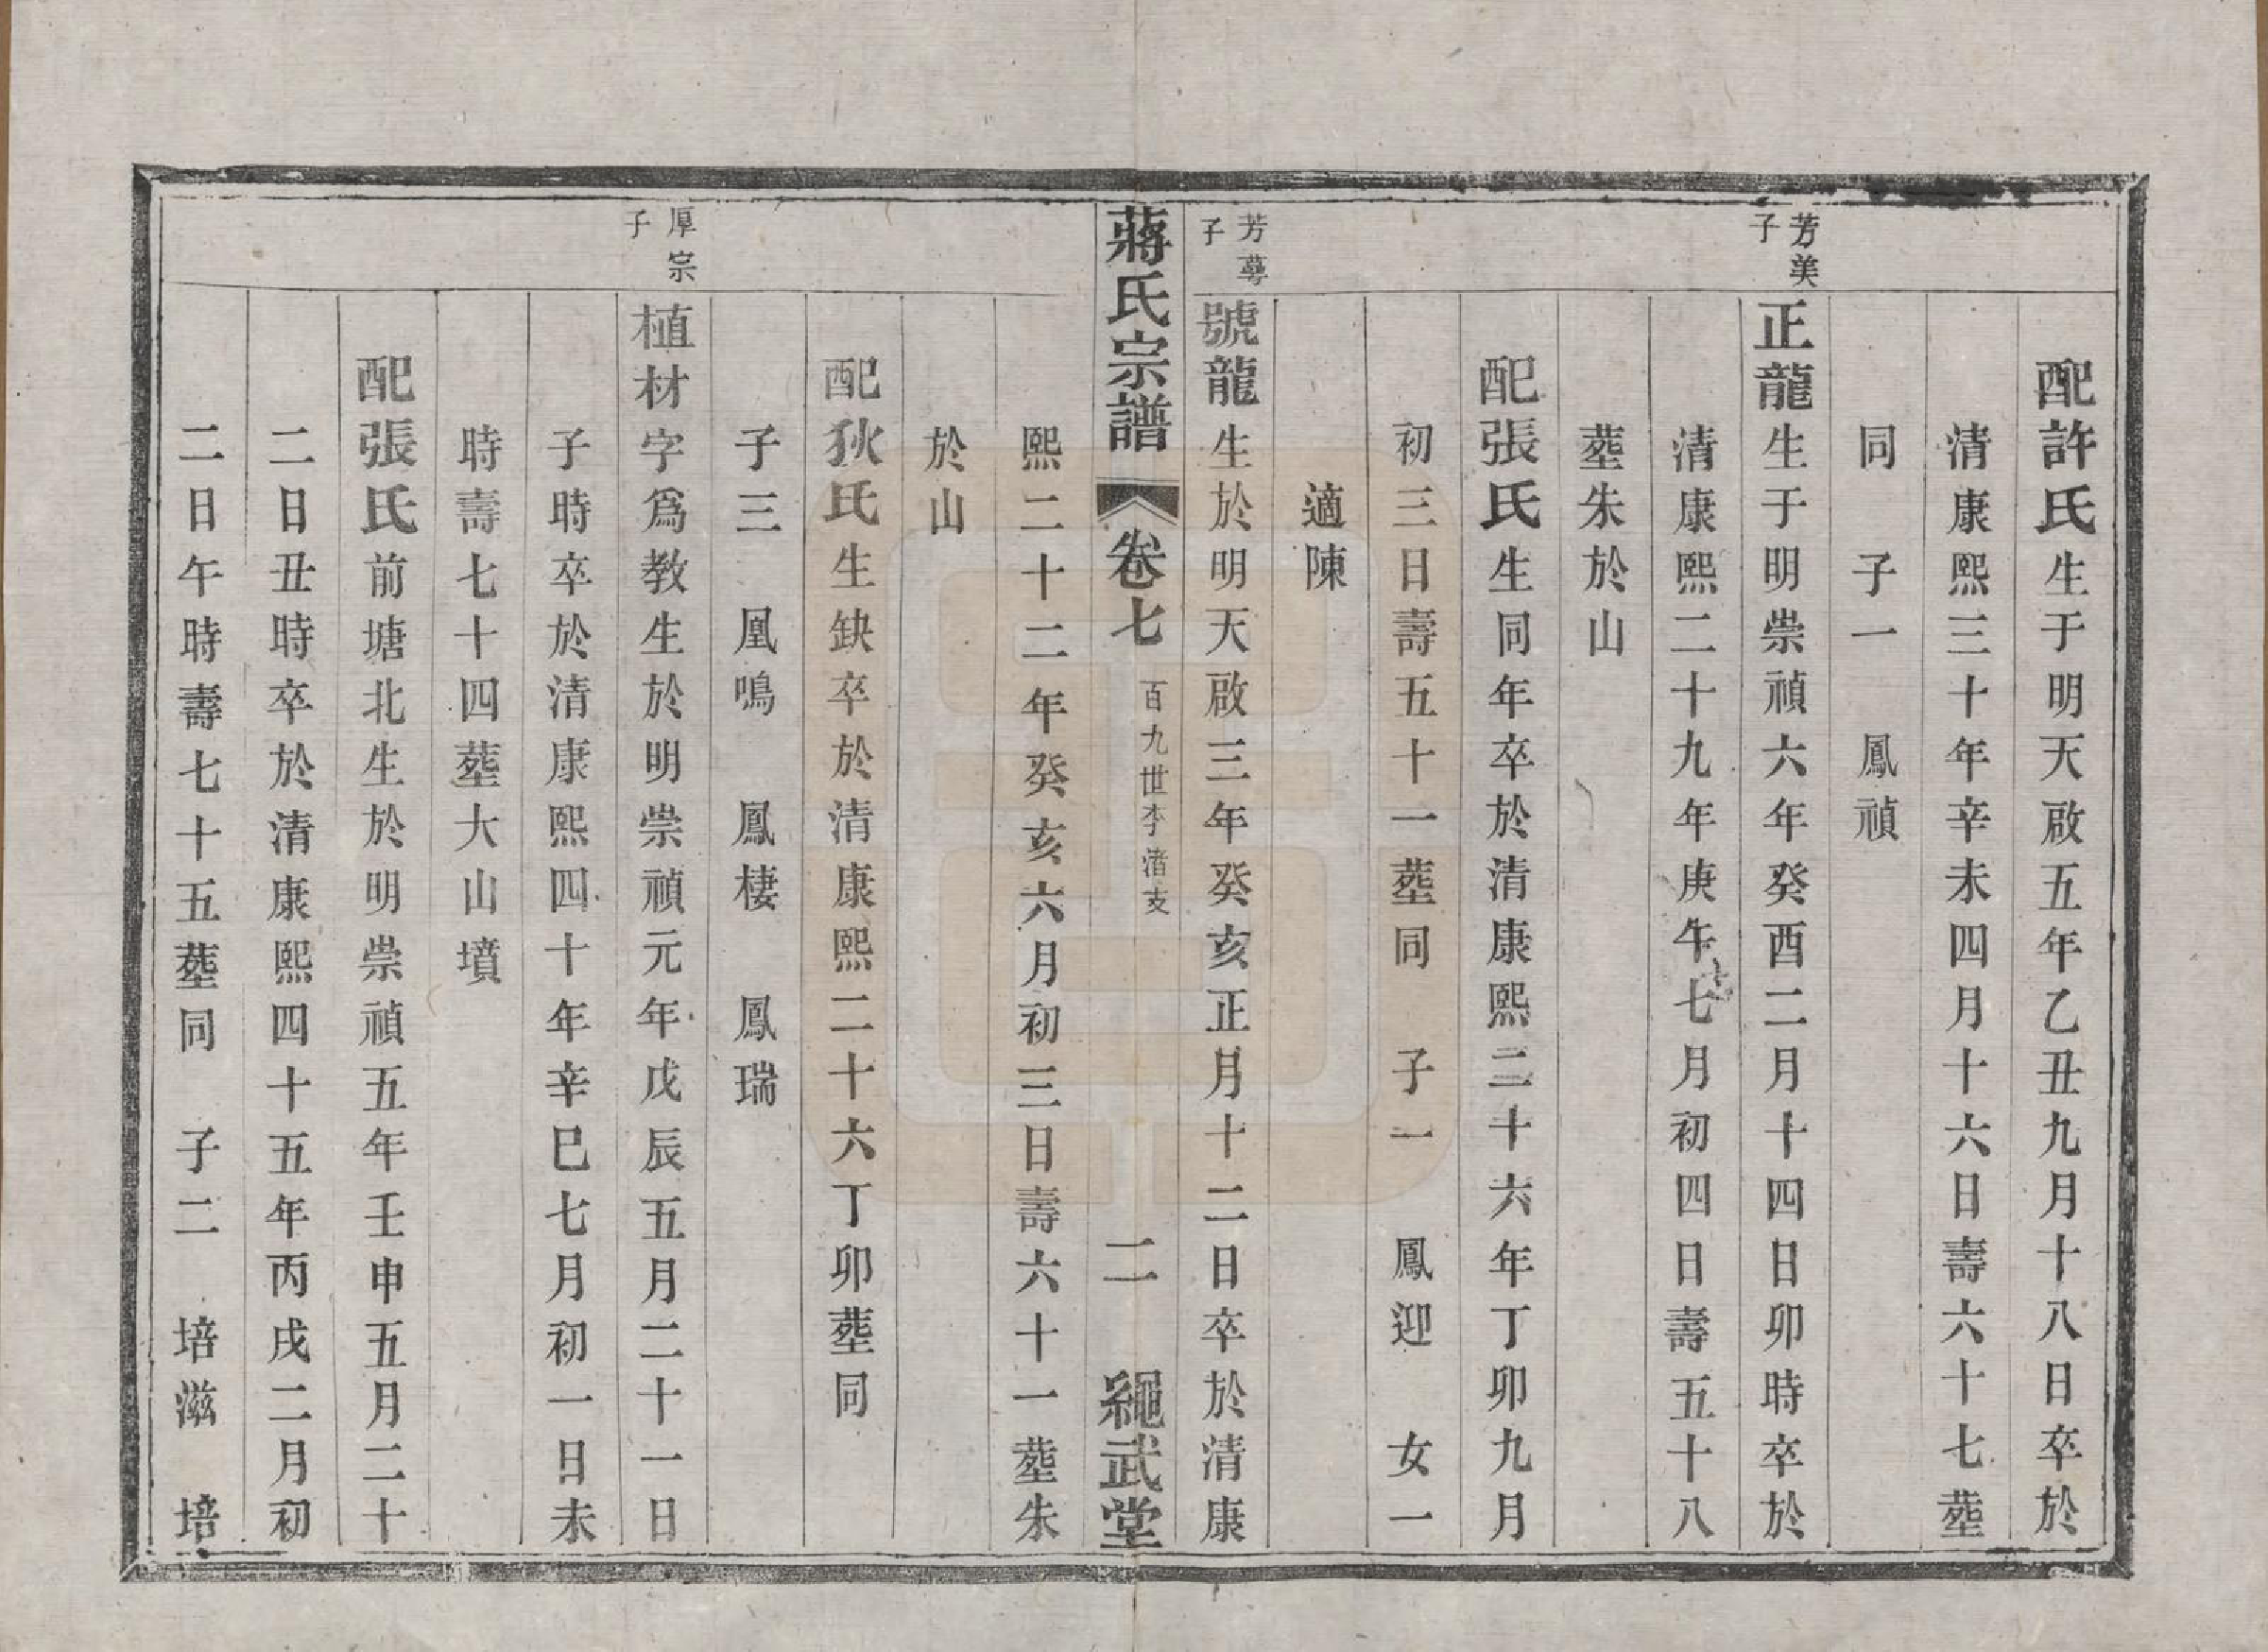 配許氏生于明天啟五年乙丑九月十八日卒於
清康熙三十年辛未四月十六日壽六十七塟
同 子一 鳳禎
芳美子
正龍生于明崇禎六年癸酉二月十四日卯時卒於
清康熙二十九年庚午七月初四日壽五十八
塟朱於山
配張氏生同年卒於清康熙二十六年丁卯九月
初三日壽五十一塟同 子一 鳳迎 女一
適陳
芳蕚子
號龍生於明天啟三年癸亥正月十二日卒於清康
蔣氏宗譜 卷七 百九世李渚支 二 繩武堂
熙二十二年癸亥六月初三日壽六十一塟朱
於山
配狄氏生缺卒於清康熙二十六丁卯塟同
子三 凰鳴 鳳棲 鳳瑞
厚宗子
植材字爲教生於明崇禎元年戊辰五月二十一日
子時卒於清康熙四十年辛巳七月初一日未
時壽七十四塟大山墳
配張氏前塘北生於明崇禎五年壬申五月二十
二日丑時卒於清康熙四十五年丙戌二月初
二日午時壽七十五塟同 子二 培滋 培